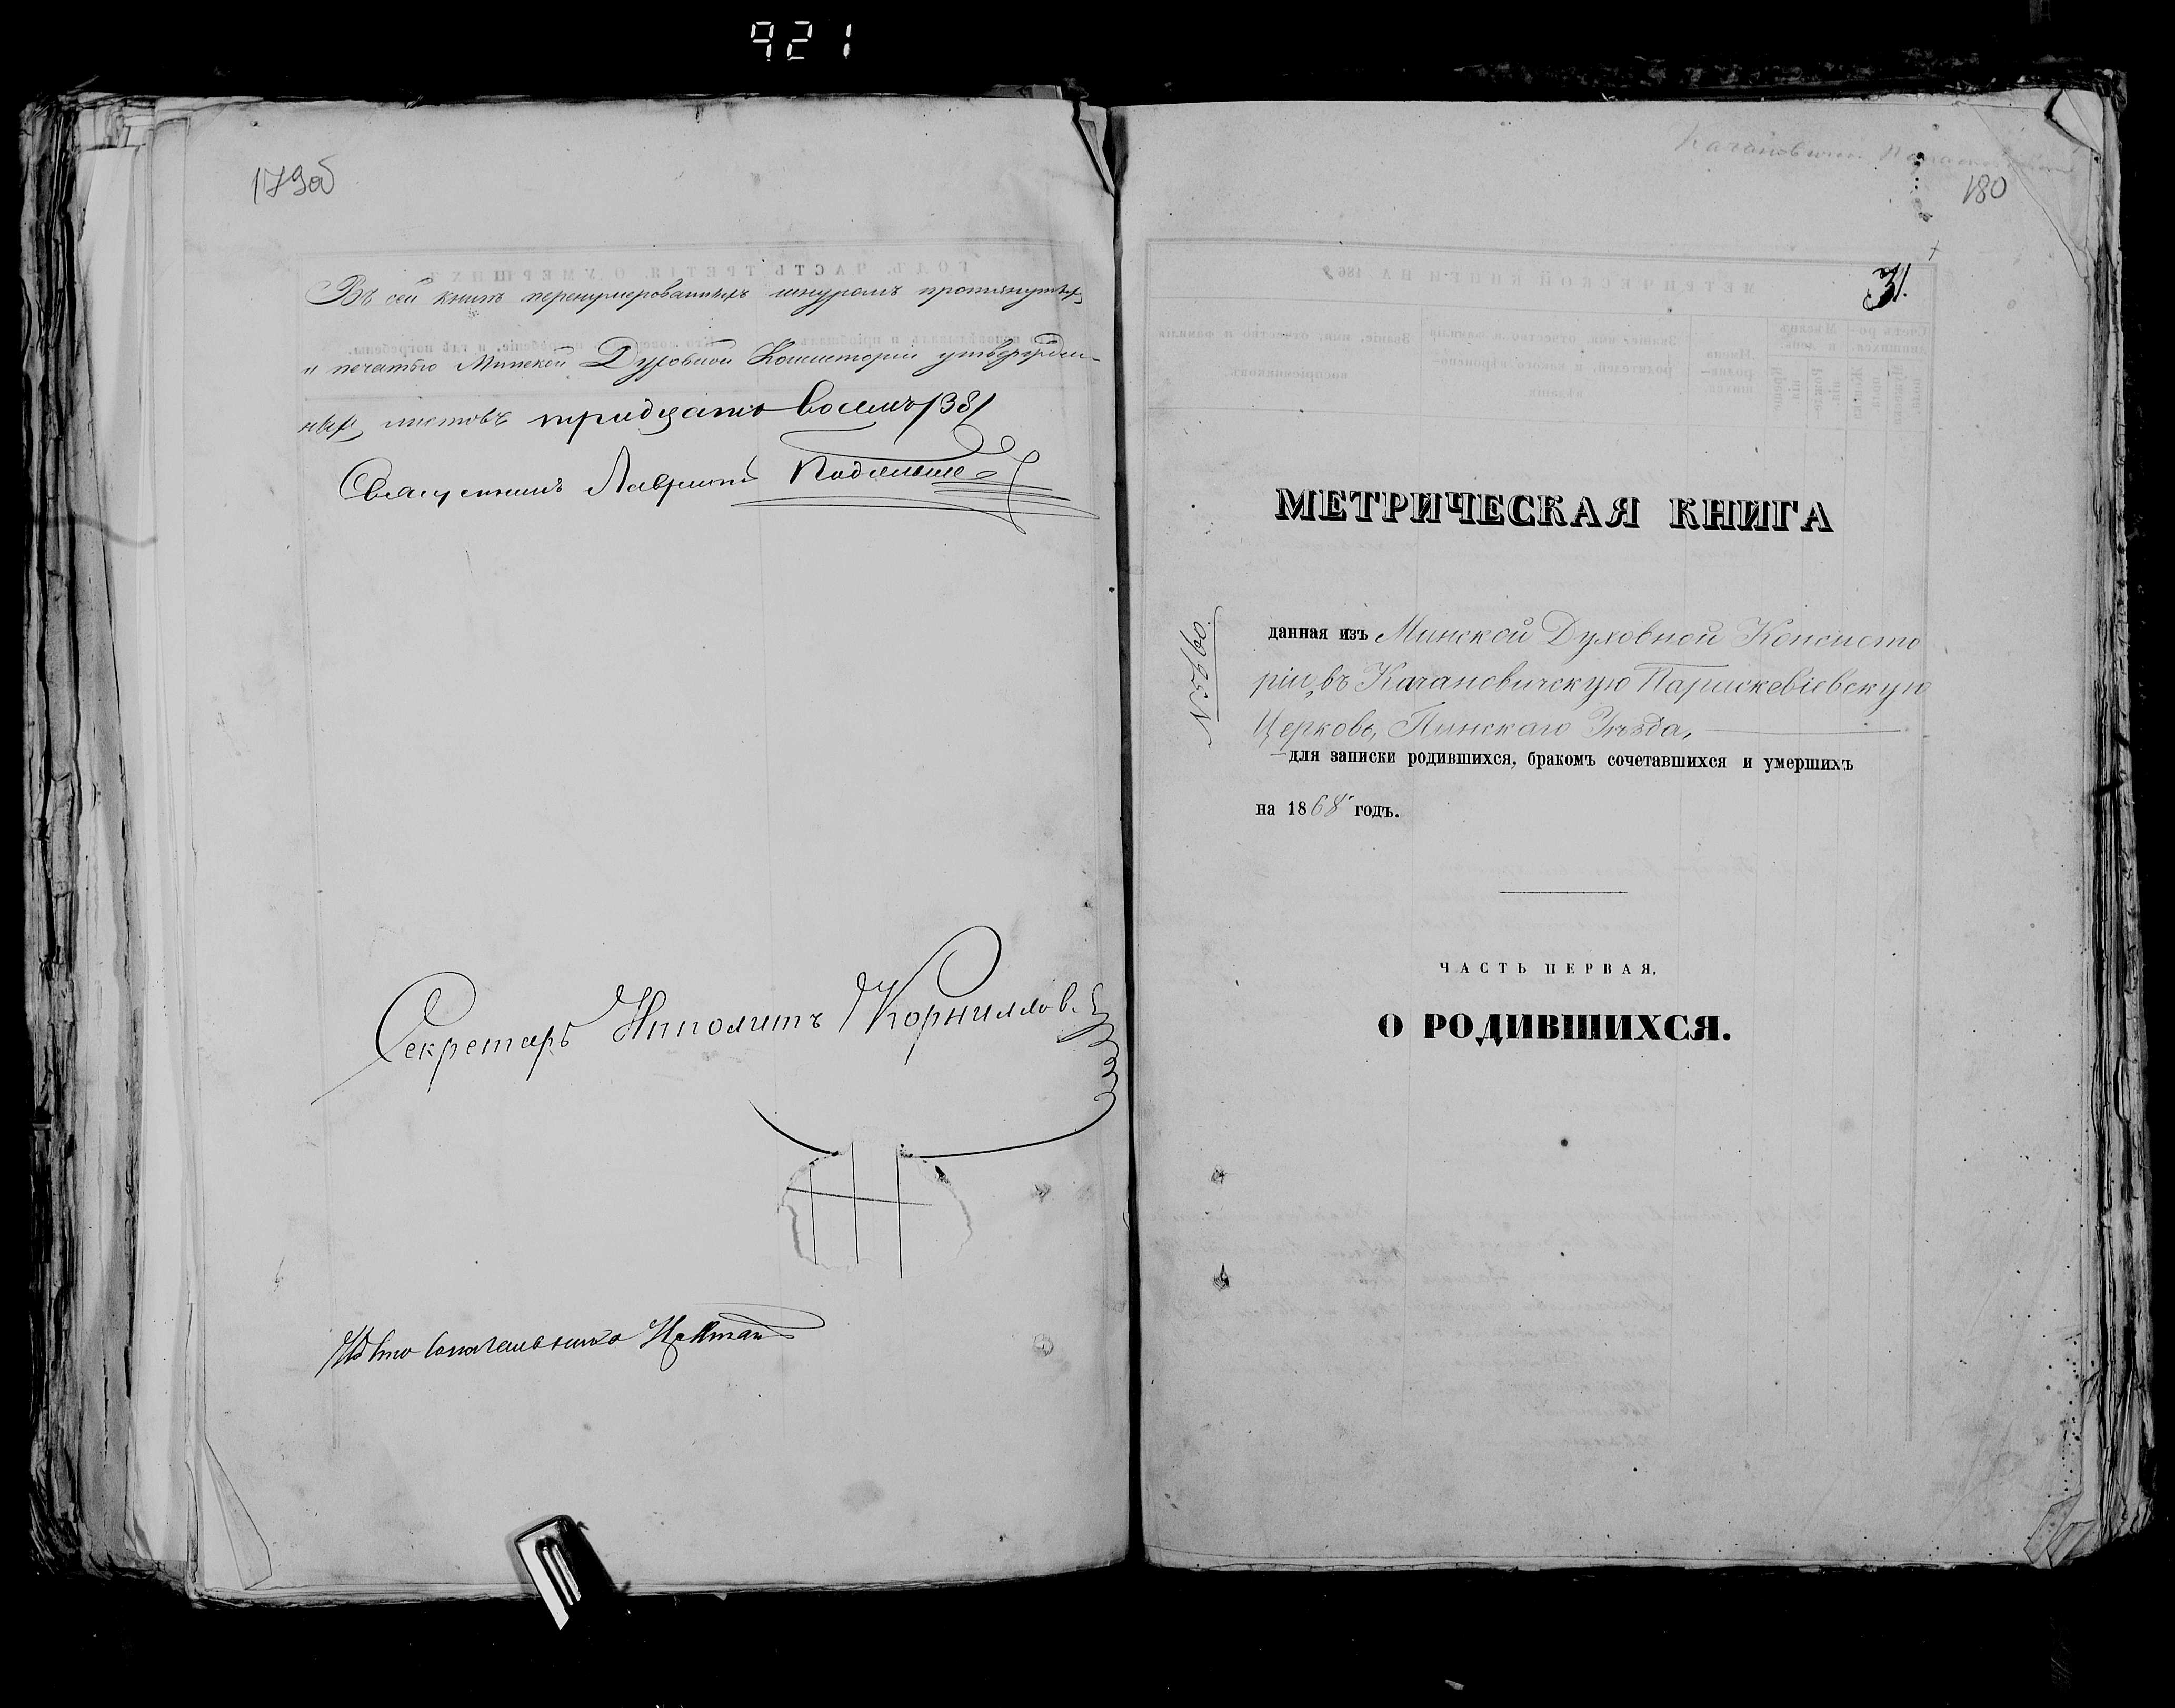 921
179об
Въ сей книгѣ перенумерованныхъ шнуромъ протянутыхъ
и печатью Минской Духовной Консисторіи утвержден-
ныхъ листовъ тридцать восемь /38/
Священникъ Лаврентій
Секретарь Ипполитъ Корниллов.
180
31.
МЕТРИЧЕСКАЯ КНИГА
№5660.
данная изъ Минской Духовной Консисто
ріи, въ Качановичскую Параскевіевскую
Церковь, Пинскаго Уѣзда,
для записки родившихся, бракомъ сочетавшихся и умершихъ
на 1868 годъ.
ЧАСТЬ ПЕРВАЯ.
О РОДИВШИХСЯ.